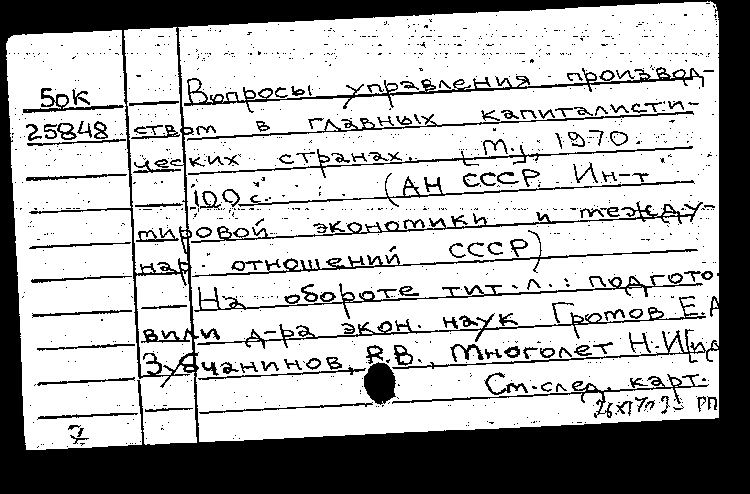 50К Вопросы управления производ-
25848 ством в главных капиталисти-
ческих странах. [М.], 1970.
100 с. (АН СССР. Ин-т
мировой экономики и между-
нар. отношений СССР)
На обороте тит. л.: подгото-
вили д-ра экон. наук Громов Е.А
Зубчанинов, В.В., Многолет Н.И[и др
См. след. карт.
РП
7